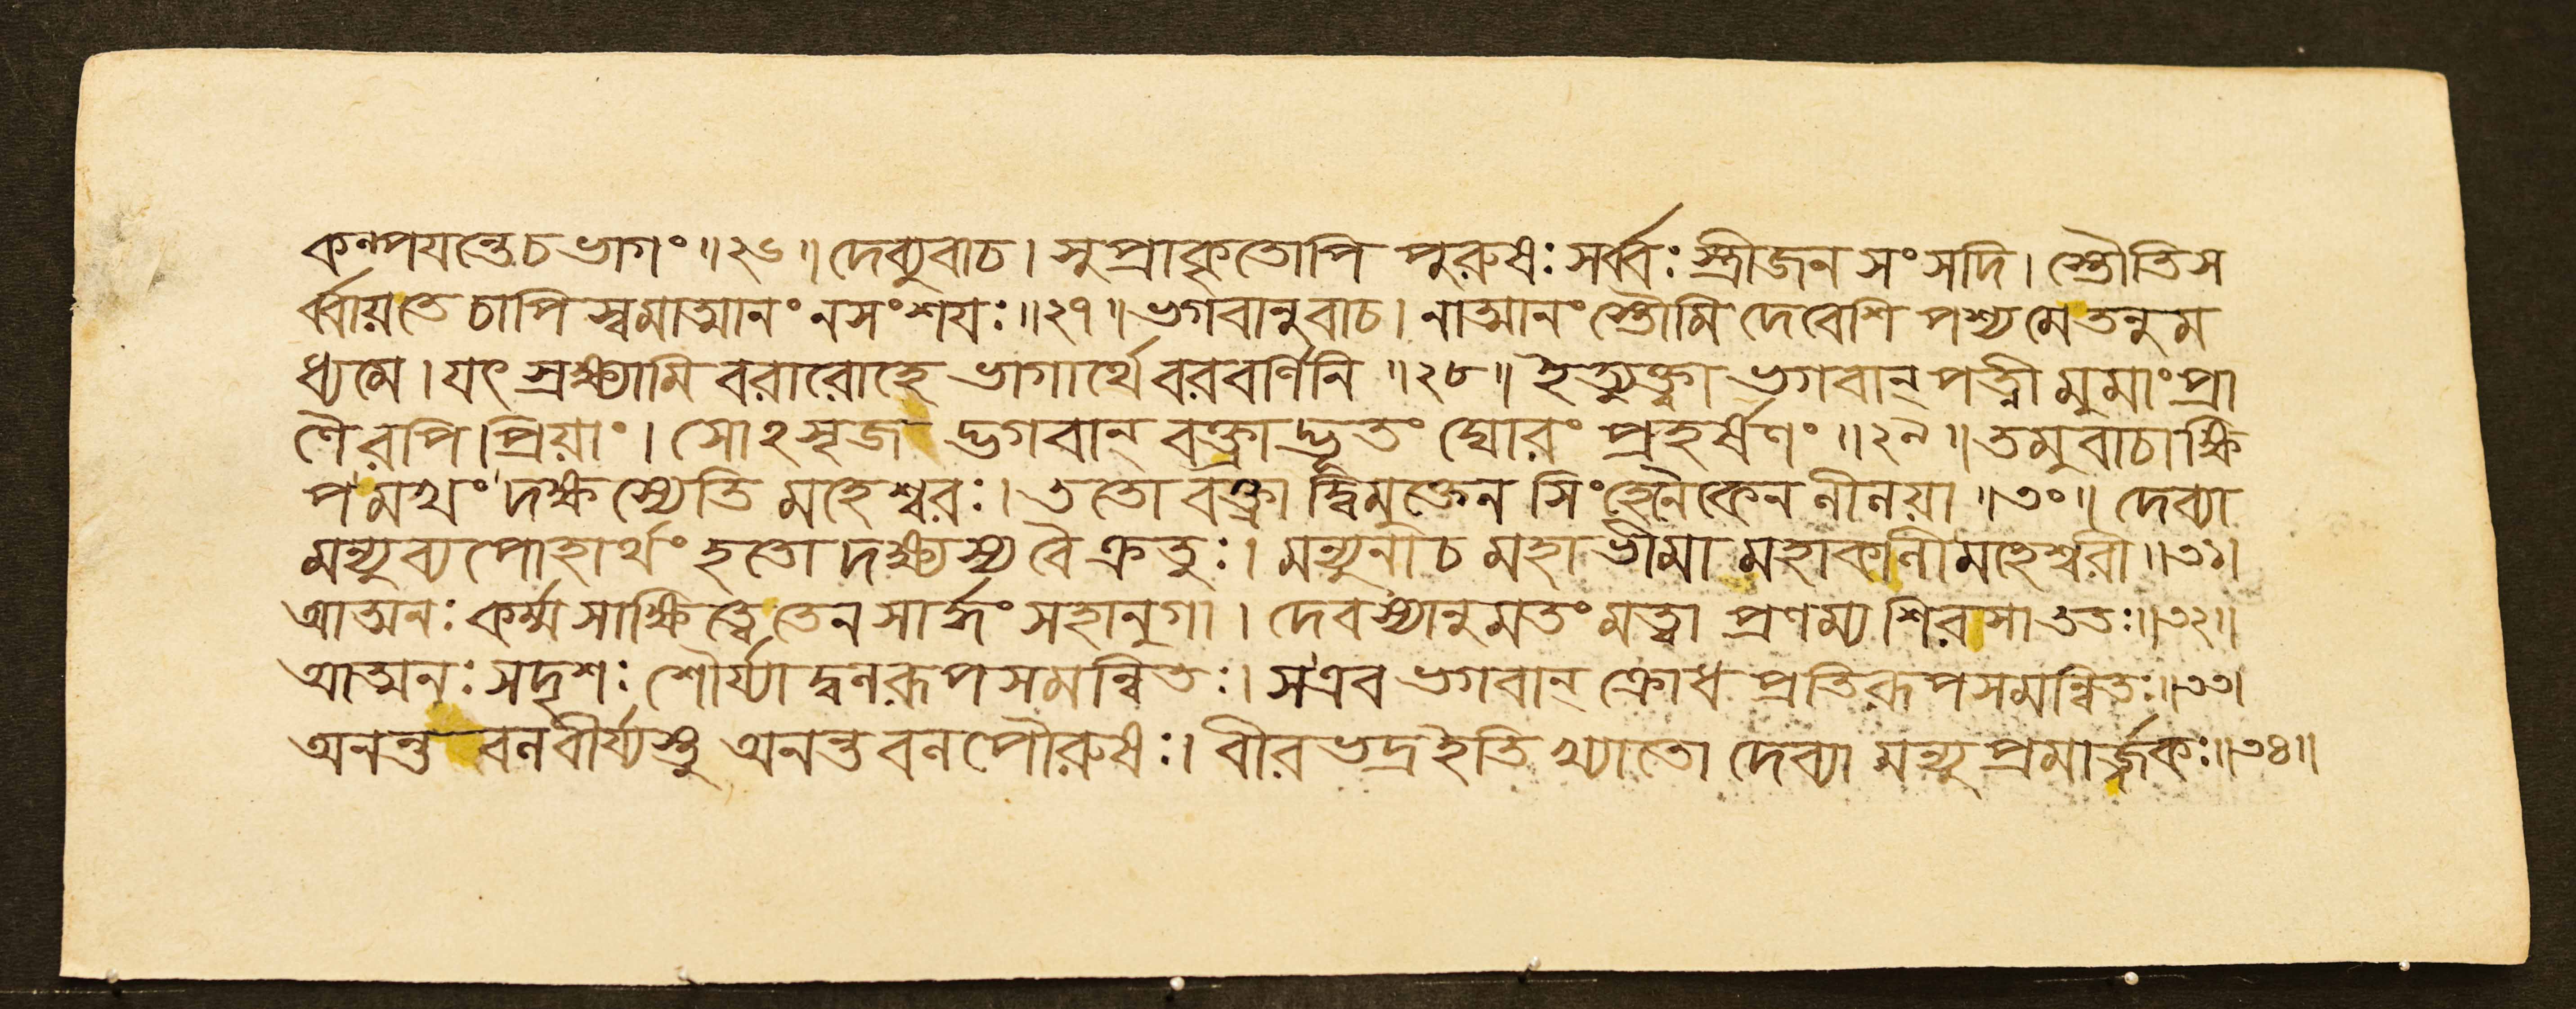 কল্পযন্তেচভাগং ॥২৬॥ দেব্যুবাচ। সুপ্রাকৃতোপি পুরুষঃ সর্ব্বঃ স্ত্রীজন সংসদি। স্তৌতিস
র্ব্বায়তে চাপি স্বমাত্মানং নসংশযঃ॥২৭॥ ভগবানুবাচ। নাত্মানং স্তৌমি দেবেশি পশ্যমেতনুম
ধ্যমে। যৎ স্রক্ষ্যামি বরারোহে ভাগার্থে বরবর্ণিনি ॥২৮॥ ইত্যুক্ত্বা ভগবান্ পত্নী মুমাং প্রা
ণৈরপি।প্রিয়াং। সোঽসৃজ দ্ভগবান্ বক্ত্রাদ্ভূতং ঘোরং প্রহর্ষণং ॥২৯॥ তমুবাচাক্ষি
প মখং দক্ষস্যেতি মহেশ্বরঃ। ততো বক্ত্রা দ্বিমুক্তেন সিংহেনৈকেন লীলয়া ॥৩০॥ দেব্যা
মন্যুব্যপোহার্থং হতো দক্ষ্যস্য বৈ ক্রতুঃ। মন্যুনাচ মহাভীমা মহাকালী মহেশ্বরী॥৩১।
আত্মনঃ কর্ম্মসাক্ষিত্বে তেন সার্দ্ধং সহানুগা। দেবস্যানুমতং মত্বা প্রণম্য শিরসা ততঃ॥৩২॥
আত্মনঃ সদৃশঃ শৌর্য্যা দ্বলরূপ সমন্বিতঃ। সএব ভগবান্ ক্রোধ প্রতিরূপসমন্বিতঃ॥৩৩।
অনন্ত বলবীর্য্যস্তু অনন্তবলপৌরুষঃ। বীরভদ্রইতি খ্যাতো দেব্যা মন্যু প্রমার্জ্জকঃ॥৩৪॥